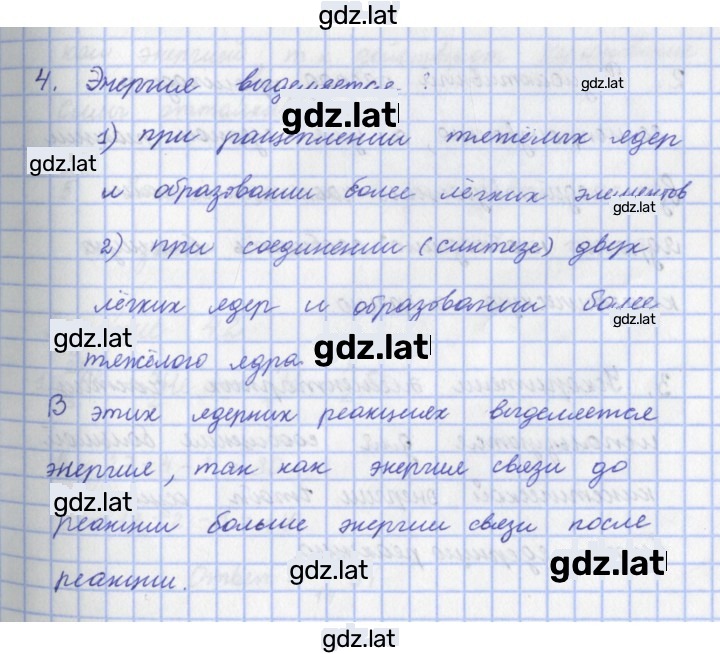 gdz.lat
4. Энергия выделяется:
gdz.lat
gdz.lat
1) при ращеплении тяжёлых ядер
gdz.lat
и образовании более лёгких элементов
gdz.lat
2) при соединении (синтезе) двух
лёгких ядер и образовании более
gdz.lat
gdz.lat
тяжёлого ядра.
gdz.lat
В этих ядерних реакциях выделяется
энергия, так как энергия связи до
gdz.lat
реакции больше энергии связи после
gdz.lat
реакции.
gdz.lat
gdz.lat